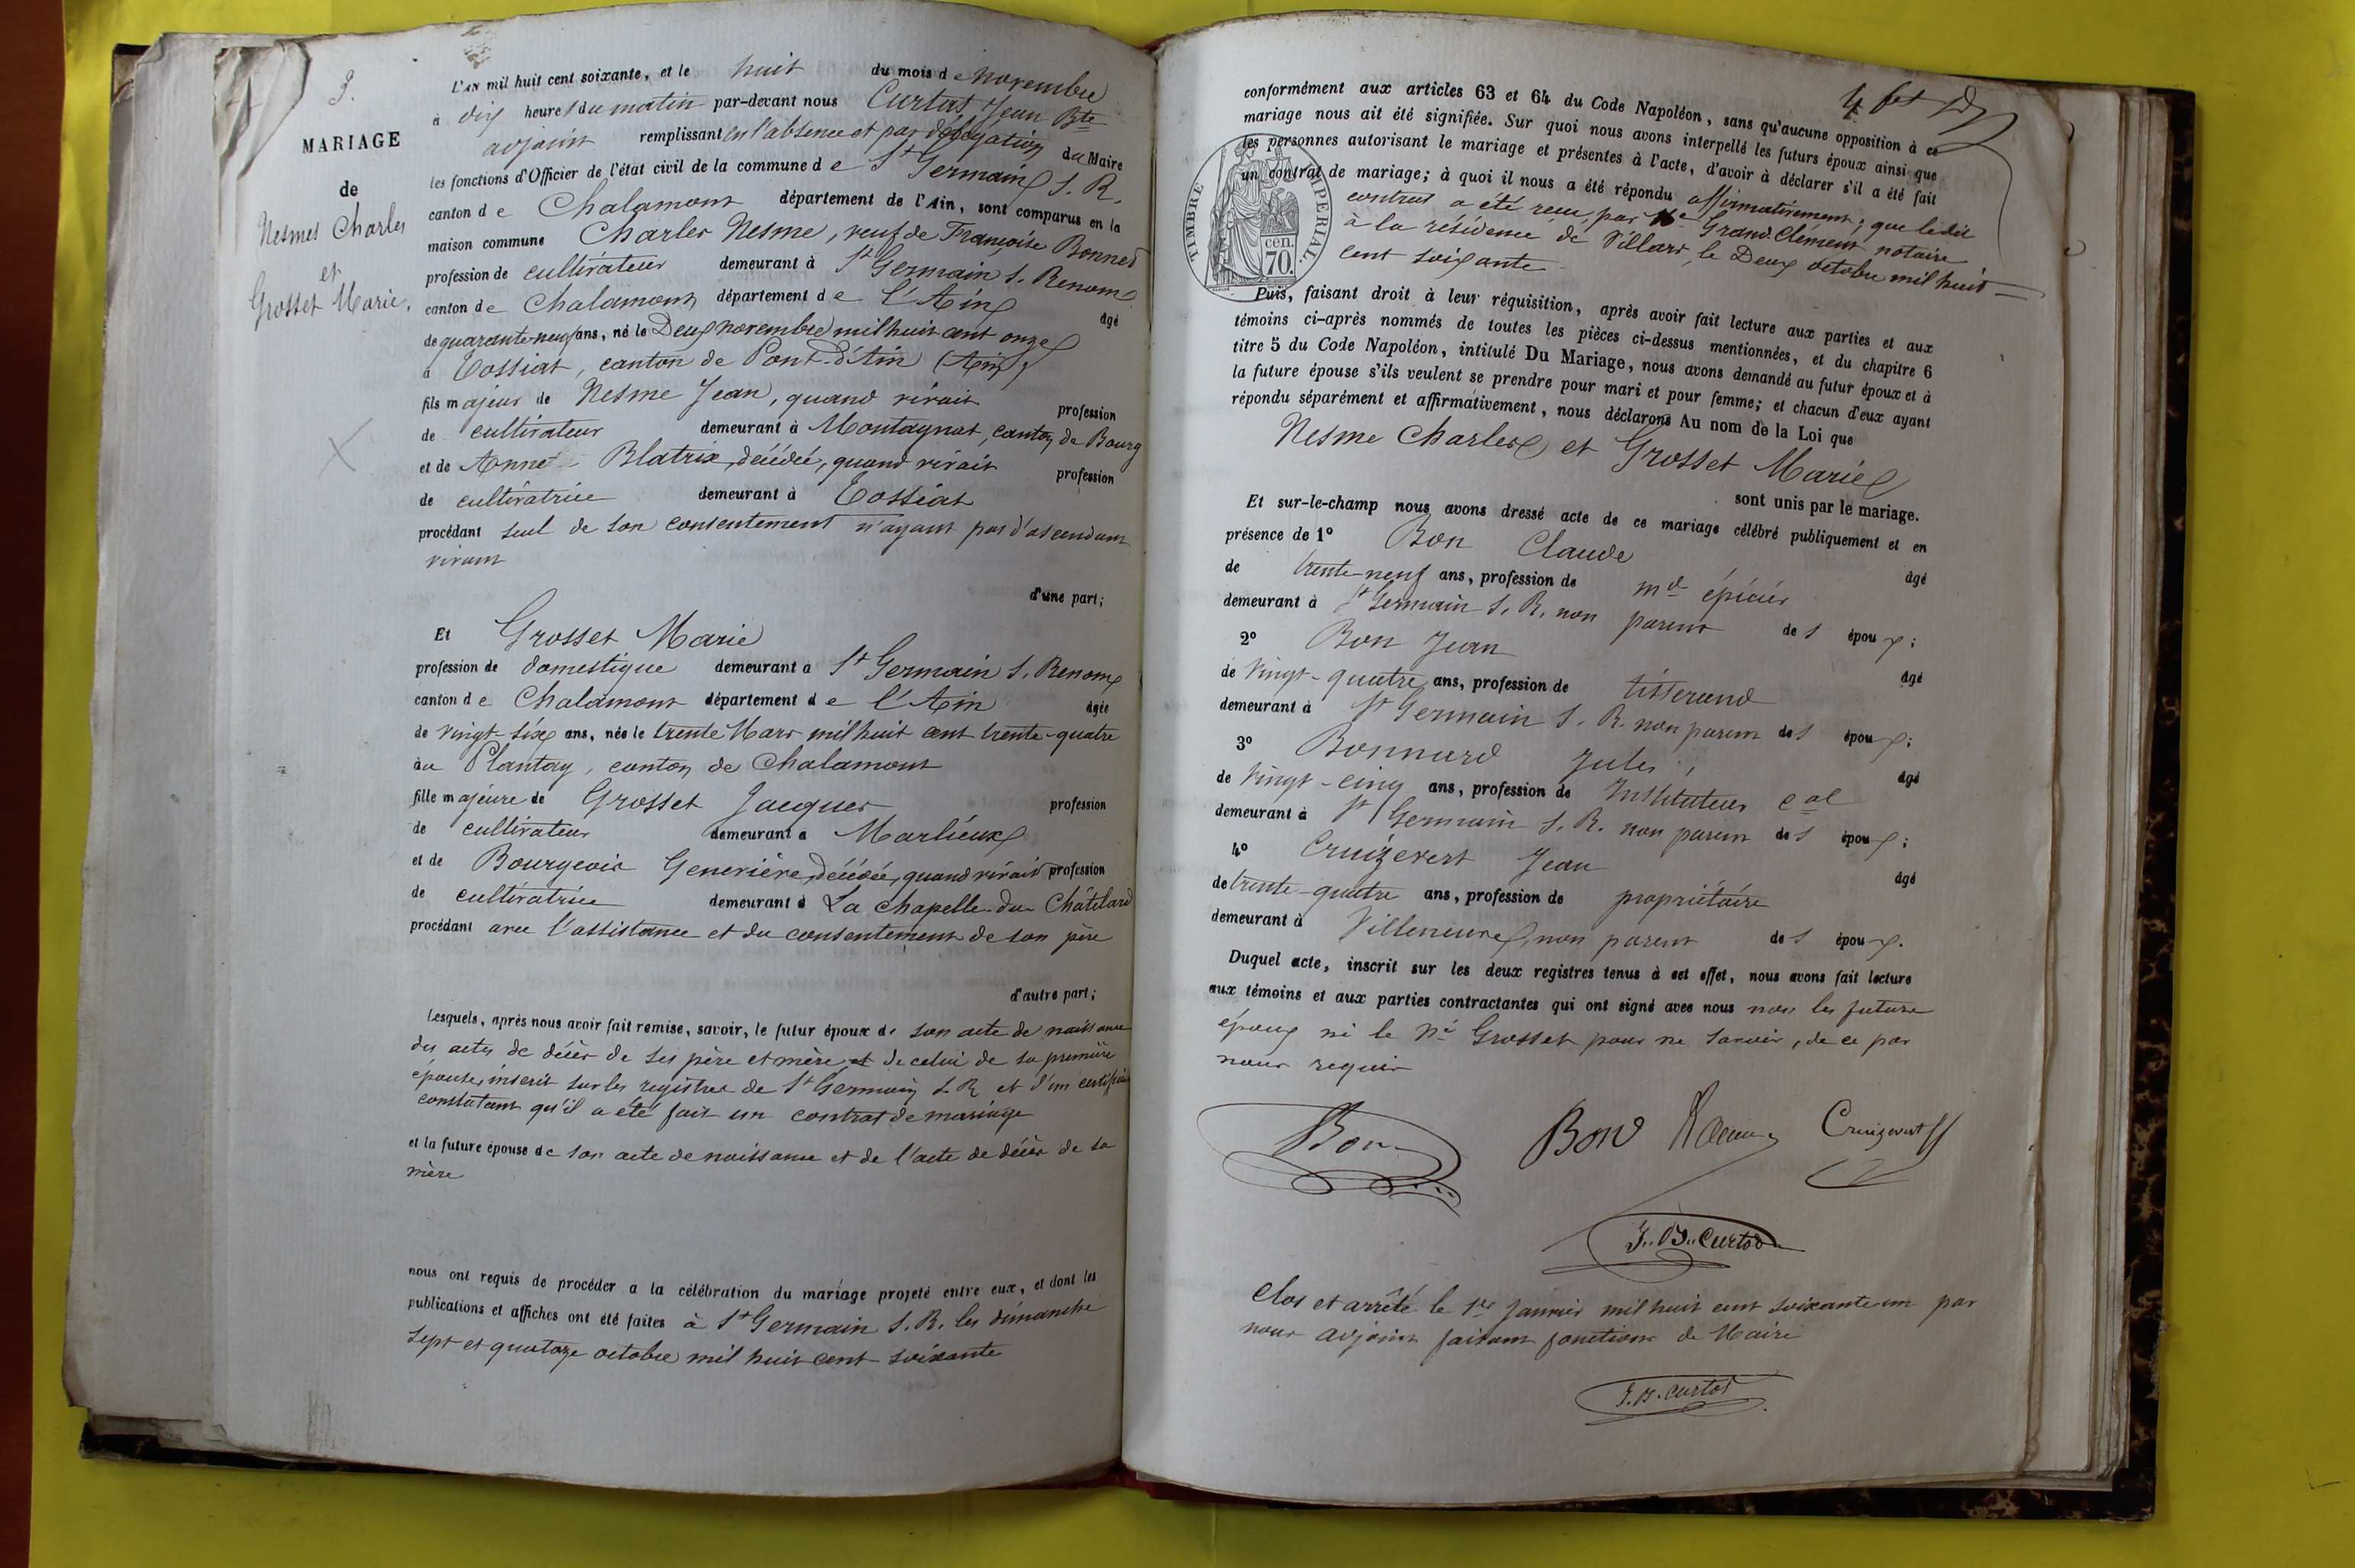 9.
MARIAGE
de
Nesmes Charles
et
Grosset Marie.
L'AN mil huit cent soixante, et le huit du mois de novembre
à dix heures du matin par-devant nous Curtat Jean Bte
adjoint remplissant en l'absence et par délégation du Maire
les fonctions d'Officier de l'état civil de la commune de St Germain S. R.
canton de Chalamont département de l'Ain, sont comparus en la
maison commune Charles Nesme, veuf de Françoise Bonned
profession de cultivateur demeurant à St Germain S. Renom
canton de Chalamont département de l'Ain âgé
de quarante-neuf ans, né le Deux novembre mil huit cent onze
à Tossiat, canton de Pont-d'Ain (Ain)
fils majeur de Nesme Jean, quand vivait profession
de cultivateur demeurant à Montagnat, canton de Bourg
et de Anne Blatrix, décédée, quand vivait profession
de cultivatrice demeurant à Tossiat
procédant seul de son consentement n'ayant pas d'ascendant
vivant
d'une part;
Et Grosset Marie
profession de domestique demeurant à St Germain S. Renom
canton de Chalamont département de l'Ain âgée
de vingt-six ans, née le trente Mars mil huit cent trente-quatre
au Plantay, canton de Chalamont
fille majeure de Grosset Jacques profession
de cultivateur demeurant à Marlieux
et de Bourgeois Geneviève, décédée, quand vivait profession
de cultivatrice demeurant à La Chapelle-du-Châtelard
procédant avec l'assistance et du consentement de son père
d'autre part;
Lesquels, après nous avoir fait remise, savoir, le futur époux de son acte de naissance
des actes de décès de ses père et mère et de celui de sa première
épouse, inscrit sur les registres de St Germain S. R. et d'un certificat
constatant qu'il a été fait un contrat de mariage
et la future épouse de son acte de naissance et de l'acte de décès de sa
mère
nous ont requis de procéder à la célébration du mariage projeté entre eux, et dont les
publications et affiches ont été faites à St Germain S. R. les dimanche
sept et quatorze octobre mil huit cent soixante
conformément aux articles 63 et 64 du Code Napoléon, sans qu'aucune opposition à ce
mariage nous ait été signifiée. Sur quoi nous avons interpellé les futurs époux ainsi que
les personnes autorisant le mariage et présentes à l'acte, d'avoir à déclarer s'il a été fait
un contrat de mariage; à quoi il nous a été répondu affirmativement; que ledit
contrat a été reçu par Me Grand Clément notaire
à la résidence de Villars, le Deux octobre mil huit
cent soixante
TIMBRE IMPERIAL.
cen.
70.
Puis, faisant droit à leur réquisition, après avoir fait lecture aux parties et aux
témoins ci-après nommés de toutes les pièces ci-dessus mentionnées, et du chapitre 6
titre 5 du Code Napoléon, intitulé Du Mariage, nous avons demandé au futur époux et à
la future épouse s'ils veulent se prendre pour mari et pour femme; et chacun d'eux ayant
répondu séparément et affirmativement, nous déclarons Au nom de la Loi que
Nesme Charles et Grosset Marie
sont unis par le mariage.
Et sur-le-champ nous avons dressé acte de ce mariage célébré publiquement et en
présence de 1° Bon Claude âgé
de trente-neuf ans, profession de md épicier
demeurant à St Germain S. R. non parent des époux;
2° Bon Jean âgé
de vingt-quatre ans, profession de tisserand
demeurant à St Germain S. R. non parent des époux;
3° Bonnard Jules, âgé
de vingt-cinq ans, profession de Instituteur cal
demeurant à St Germain S. R. non parent des époux;
4° Cruizevert Jean âgé
de trente-quatre ans, profession de propriétaire
demeurant à Villeneuve, non parent des époux.
Duquel acte, inscrit sur les deux registres tenus à cet effet, nous avons fait lecture
aux témoins et aux parties contractantes qui ont signé avec nous non les future
époux ni le Né Grosset pour ne savoir, de ce par
nous requis
Bon Bon Cruizevert
J. B. Curtat
Clos et arrêté le 1er Janvier mil huit cent soixante-un par
nous adjoint faisant fonctions de Maire
J. B. Curtat